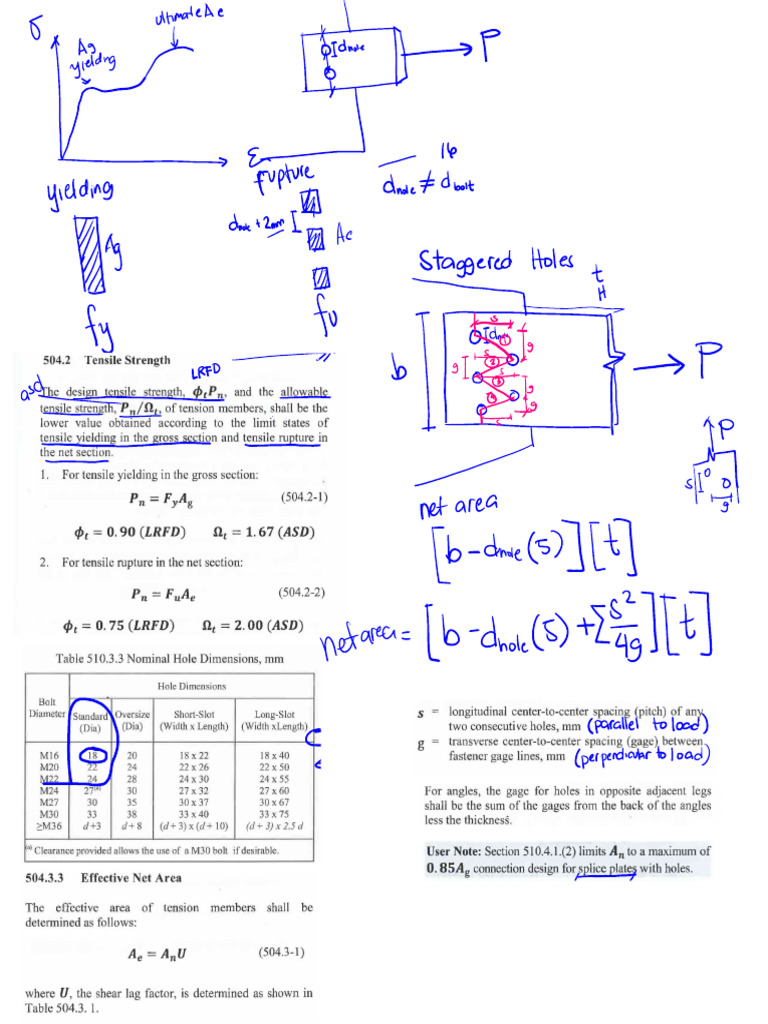 σ
ultimate Ae
Ag
yielding
dhole
P
ε
yielding
rupture
16
dhole ≠ dbolt
dhole + 2mm
Ag
Ae
fy
fu
Staggered Holes
t
s
dhole
1
g
b
g
s
2
3
g
4
g
s
P
P
s
g
net area
[b - dhole (5)] [t]
net area = [b - dhole (5) + Σ s²/4g] [t]
504.2 Tensile Strength
LRFD
asd
The design tensile strength, ϕtPn, and the allowable
tensile strength, Pn/Ωt, of tension members, shall be the
lower value obtained according to the limit states of
tensile yielding in the gross section and tensile rupture in
the net section.
1. For tensile yielding in the gross section:
Pn = FyAg (504.2-1)
ϕt = 0.90 (LRFD) Ωt = 1.67 (ASD)
2. For tensile rupture in the net section:
Pn = FuAe (504.2-2)
ϕt = 0.75 (LRFD) Ωt = 2.00 (ASD)
Table 510.3.3 Nominal Hole Dimensions, mm
Hole Dimensions
Bolt Diameter Standard (Dia) Oversize (Dia) Short-Slot (Width x Length) Long-Slot (Width xLength)
M16 18 20 18 x 22 18 x 40
M20 22 24 22 x 26 22 x 50
M22 24 28 24 x 30 24 x 55
M24 27(a) 30 27 x 32 27 x 60
M27 30 35 30 x 37 30 x 67
M30 33 38 33 x 40 33 x 75
≥M36 d+3 d + 8 (d + 3) x (d + 10) (d + 3) x 2.5 d
(a) Clearance provided allows the use of a M30 bolt if desirable.
504.3.3 Effective Net Area
The effective area of tension members shall be
determined as follows:
Ae = AnU (504.3-1)
where U, the shear lag factor, is determined as shown in
Table 504.3. 1.
s = longitudinal center-to-center spacing (pitch) of any
two consecutive holes, mm (parallel to load)
g = transverse center-to-center spacing (gage) between
fastener gage lines, mm (perpendicular to load)
For angles, the gage for holes in opposite adjacent legs
shall be the sum of the gages from the back of the angles
less the thickness.
User Note: Section 510.4.1.(2) limits An to a maximum of
0.85Ag connection design for splice plates with holes.